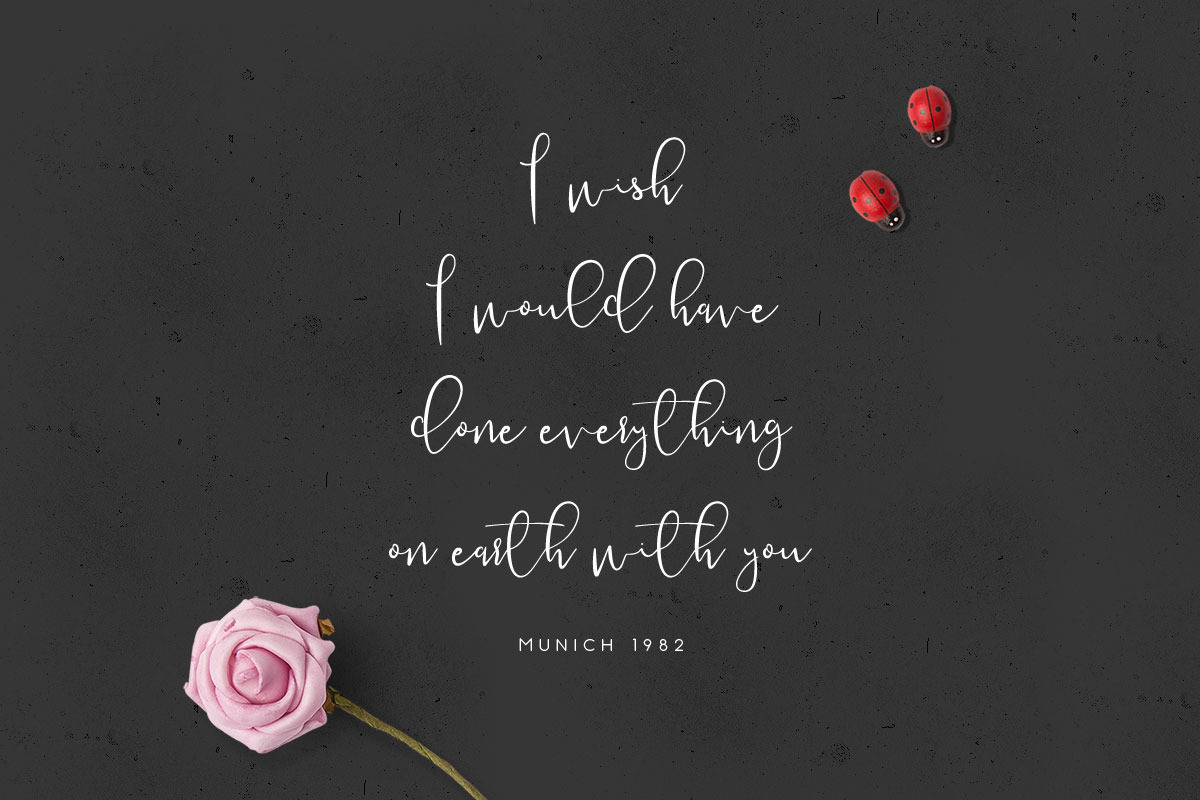 I wish
I would have
done everything
on earth with you
MUNICH 1982